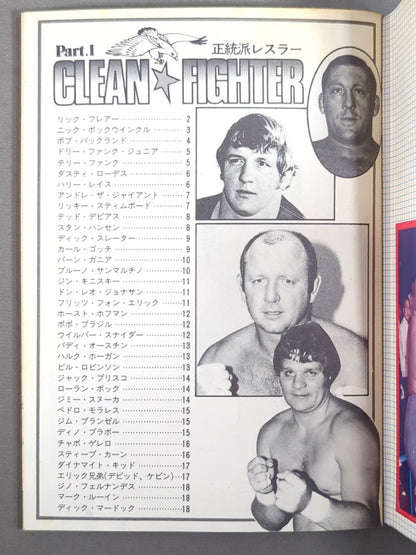 Part.1
正統派レスラー
CLEAN★FIGHTER
リック・フレアー 2
ニック・ボックウインクル 3
ボブ・バックランド 4
ドリー・ファンク・ジュニア 5
テリー・ファンク 5
ダスティ・ローデス 6
ハリー・レイス 6
アンドレ・ザ・ジャイアント 7
リッキー・スティムボード 7
テッド・デビアス 8
スタン・ハンセン 8
ディック・スレーター 9
カール・ゴッチ 9
バーン・ガニア 10
ブルーノ・サンマルチノ 10
ジン・キニスキー 11
ドン・レオ・ジョナサン 11
フリッツ・フォン・エリック 11
ホースト・ホフマン 12
ボボ・ブラジル 12
ウイルバー・スナイダー 12
バディ・オースチン 13
ハルク・ホーガン 13
ビル・ロビンソン 13
ジャック・ブリスコ 14
ローラン・ボック 14
ジミー・スヌーカ 14
ペドロ・モラレス 15
ジム・ブランゼル 15
ディノ・ブラボー 15
チャボ・ゲレロ 16
スティーブ・カーン 16
ダイナマイト・キッド 17
エリック兄弟(デビッド、ケビン) 17
ジノ・フェルナンデス 18
マーク・ルーイン 18
ディック・マードック 18